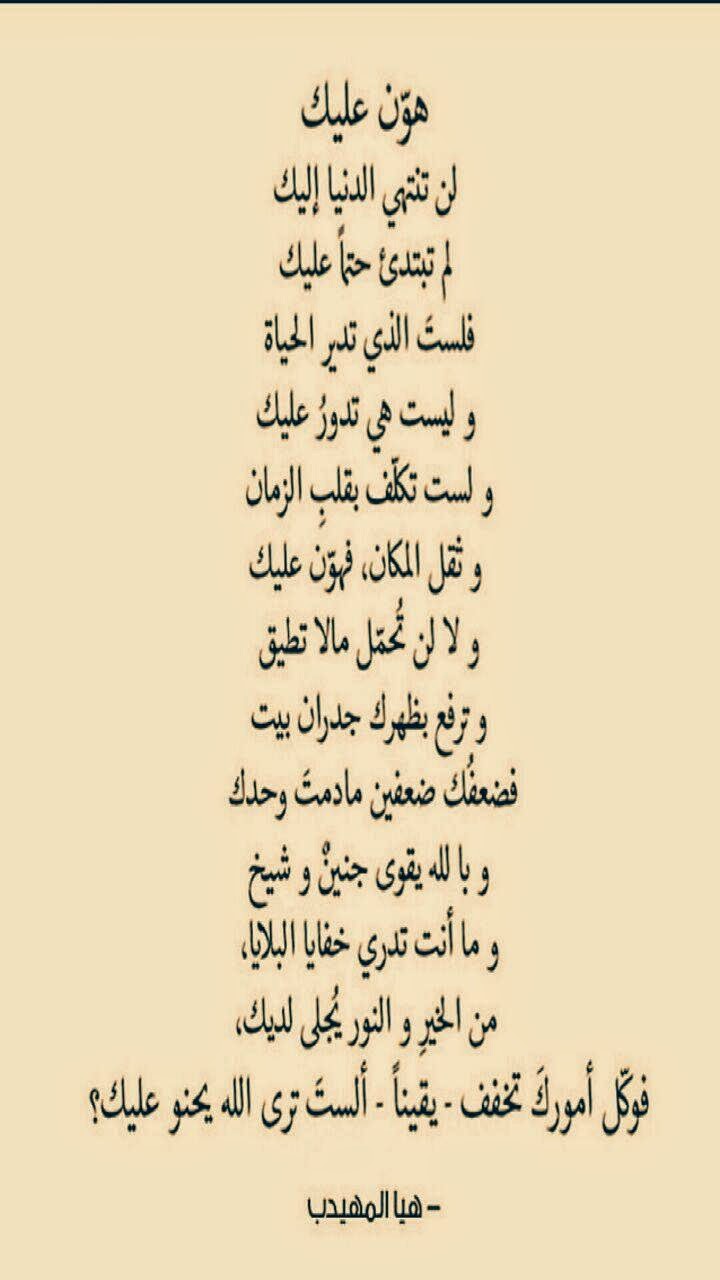 هوّن عليك
لن تنتهي الدنيا إليك
لم تبتدئ حتماً عليك
فلستَ الذي تدير الحياة
و ليست هي تدورُ عليك
و لست تكلّف بقلبِ الزمان
و ثقل المكان، فهوّن عليك
و لا لن تُحمّل مالا تطيق
و ترفع بظهرك جدران بيت
فضعفُك ضعفين مادمتَ وحدك
و با لله يقوى جنينٌ و شيخ
و ما أنت تدري خفايا البلايا،
من الخيرِ و النور يُجلى لديك،
فوكّل أموركَ تخفف - يقيناً - ألستَ ترى الله يحنو عليك؟
– هيا المهيدب